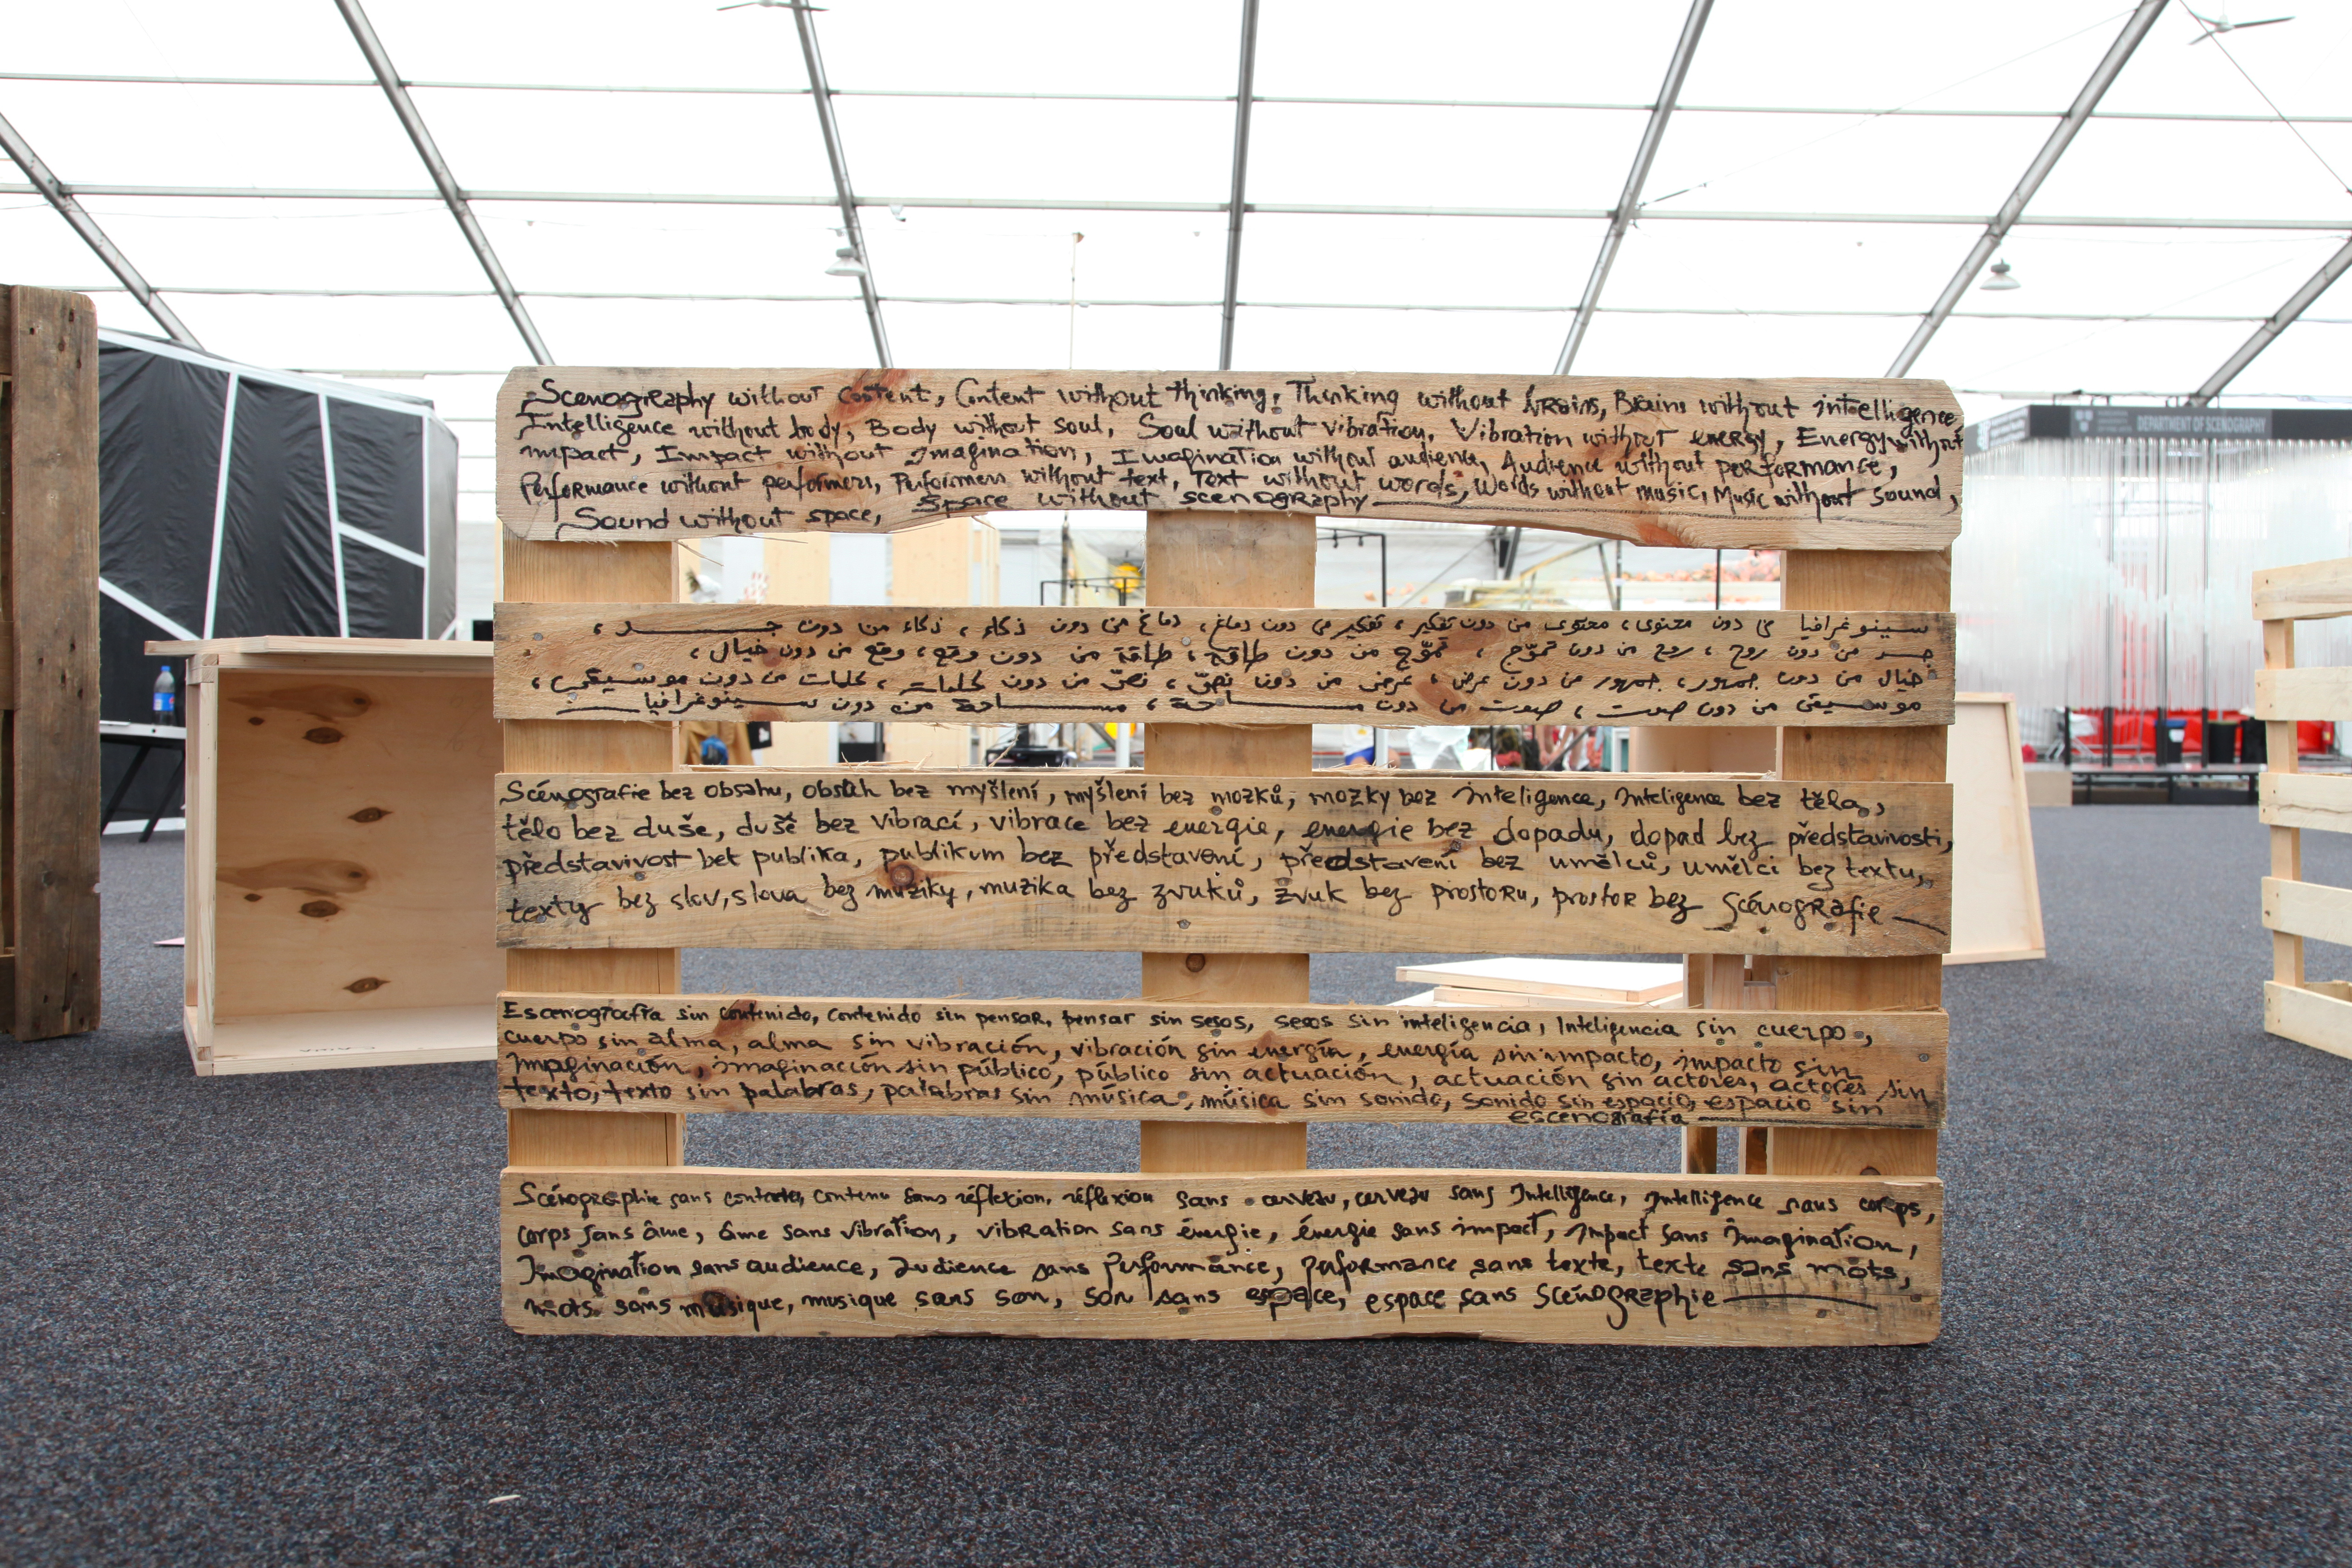 Scenography without Content, Content without thinking, Thinking without brains, Brains without intelligence
Intelligence without body, Body without soul, Soul without vibration, Vibration without energy, Energy without
impact, Impact without Imagination, Imagination without audience, Audience without performance,
Performance without performers, Performers without text, Text without words, Words without music, Music without sound,
Sound without space, Space without scenography
سينوغرافيا من دون محتوى، محتوى من دون تفكير، تفكير من دون دماغ، دماغ من دون ذكاء، ذكاء من دون جسد،
جسد من دون روح، روح من دون تموّج، تموّج من دون طاقة، طاقة من دون وقع، وقع من دون خيال،
خيال من دون جمهور، جمهور من دون عرض، عرض من دون نصّ، نصّ من دون كلمات، كلمات من دون موسيقى،
موسيقى من دون صوت، صوت من دون مساحة، مساحة من دون سينوغرافيا
Scénografie bez obsahu, obsah bez myšlení, myšlení bez mozků, mozky bez inteligence, Inteligence bez těla,
tělo bez duše, duše bez vibrací, vibrace bez energie, energie bez dopadu, dopad bez představivosti,
představivost bet publika, publikum bez představení, představení bez umělců, umělci bez textu,
texty bez slov, slova bez muziky, muzika bez zvuků, zvuk bez prostoru, prostor bez Scénografie
Escenografía sin contenido, contenido sin pensar, pensar sin sesos, sesos sin inteligencia, Inteligencia sin cuerpo,
cuerpo sin alma, alma sin vibración, vibración sin energía, energía sin impacto, impacto sin
Imaginación, imaginación sin público, público sin actuación, actuación sin actores, actores sin
texto, texto sin palabras, palabras sin música, música sin sonido, sonido sin espacio, espacio sin
escenografía
Scénographie sans contenu, contenu sans réflexion, réflexion sans cerveau, cerveau sans Intelligence, Intelligence sans corps,
corps sans âme, âme sans vibration, vibration sans énergie, énergie sans impact, Impact sans Imagination,
Imagination sans audience, audience sans Performance, performance sans texte, texte sans mots,
mots sans musique, musique sans son, son sans espace, espace sans Scénographie
DEPARTMENT OF SCENOGRAPHY